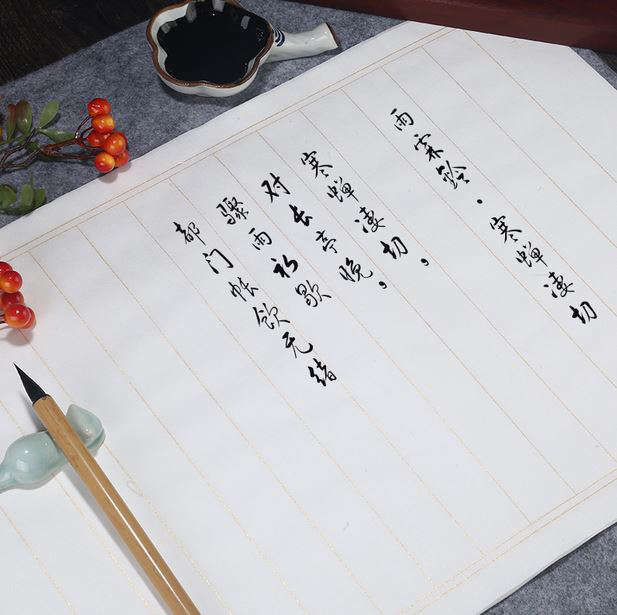 雨霖铃·寒蝉凄切
寒蝉凄切,
对长亭晚,
骤雨初歇
都门帐饮无绪